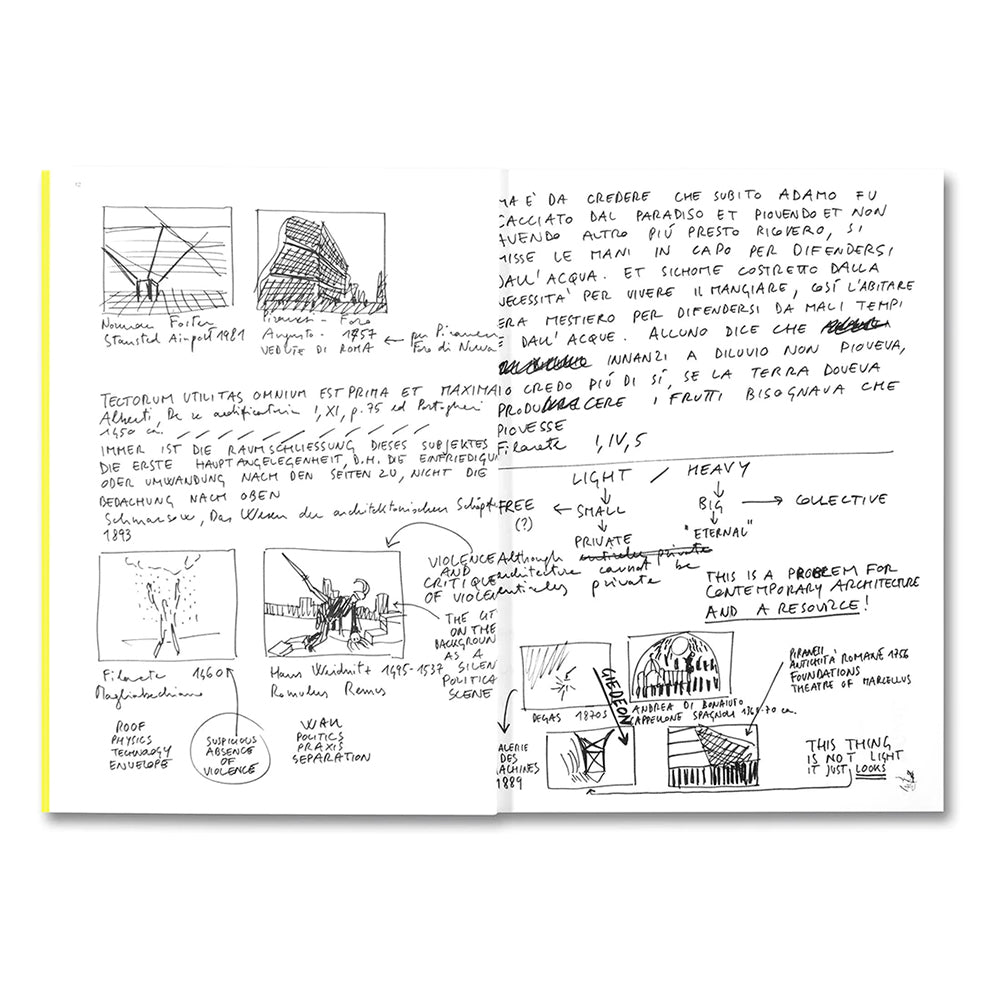 12
Norman Foster
Stansted Airport 1981
Piranesi - Foro
Augusto - 1757
VEDUTE DI ROMA
← per Piranesi
Foro di Nerva
TECTORUM UTILITAS OMNIUM EST PRIMA ET MAXIMA
Alberti, De re aedificatoria I, XI, p. 75 ed Portoghesi
1450 ca.
IMMER IST DIE RAUMSCHLIESSUNG DIESES SUBJEKTES
DIE ERSTE HAUPTANGELEGENHEIT, D.H. DIE EINFRIEDIGU
ODER UMWANDUNG NACH DEN SEITEN ZU, NICHT DIE
BEDACHUNG NACH OBEN
Schmarsow, Das Wesen der architektonischen Schöpf
1893
VIOLENCE
AND
CRITIQUE
OF VIOLEN
THE CIT
ON THE
BACKGROUN
AS A
SILEN
POLITICA
SCENE
Filarete 1460
Magliabechiano
Hans Weiditz 1495-1537
Romulus Remus
ROOF
PHYSICS
TECHNOLOGY
ENVELOPE
SUSPICIOUS
ABSENCE
OF
VIOLENCE
WALL
POLITICS
PRAXIS
SEPARATION
MA È DA CREDERE CHE SUBITO ADAMO FU
CACCIATO DAL PARADISO ET PIOVENDO ET NON
AVENDO ALTRO PIÚ PRESTO RICOVERO, SI
MISSE LE MANI IN CAPO PER DIFENDERSI
DALL'ACQUA. ET SICHOME COSTRETTO DALLA
NECESSITÀ PER VIVERE IL MANGIARE, COSÍ L'ABITARE
ERA MESTIERO PER DIFENDERSI DA MALI TEMPI
E DALL'ACQUE. ALCUNO DICE CHE
INNANZI A DILUVIO NON PIOVEVA,
IO CREDO PIÚ DI SÍ, SE LA TERRA DOVEVA
PRODUCERE I FRUTTI BISOGNAVA CHE
PIOVESSE
Filarete I, IV, 5
LIGHT / HEAVY
FREE ← SMALL BIG → COLLECTIVE
(?)
PRIVATE "ETERNAL"
Although entirely private
architecture cannot be
entirely private
THIS IS A PROBLEM FOR
CONTEMPORARY ARCHITECTURE
AND A RESOURCE!
GIEDEON
DEGAS 1870s
ANDREA DI BONAIUTO
CAPPELLONE SPAGNOLI 1365-70 ca.
PIRANESI
ANTICHITÀ ROMANE 1756
FOUNDATIONS
THEATRE OF MARCELLUS
GALERIE
DES
MACHINES
1889
THIS THING
IS NOT LIGHT
IT JUST LOOKS